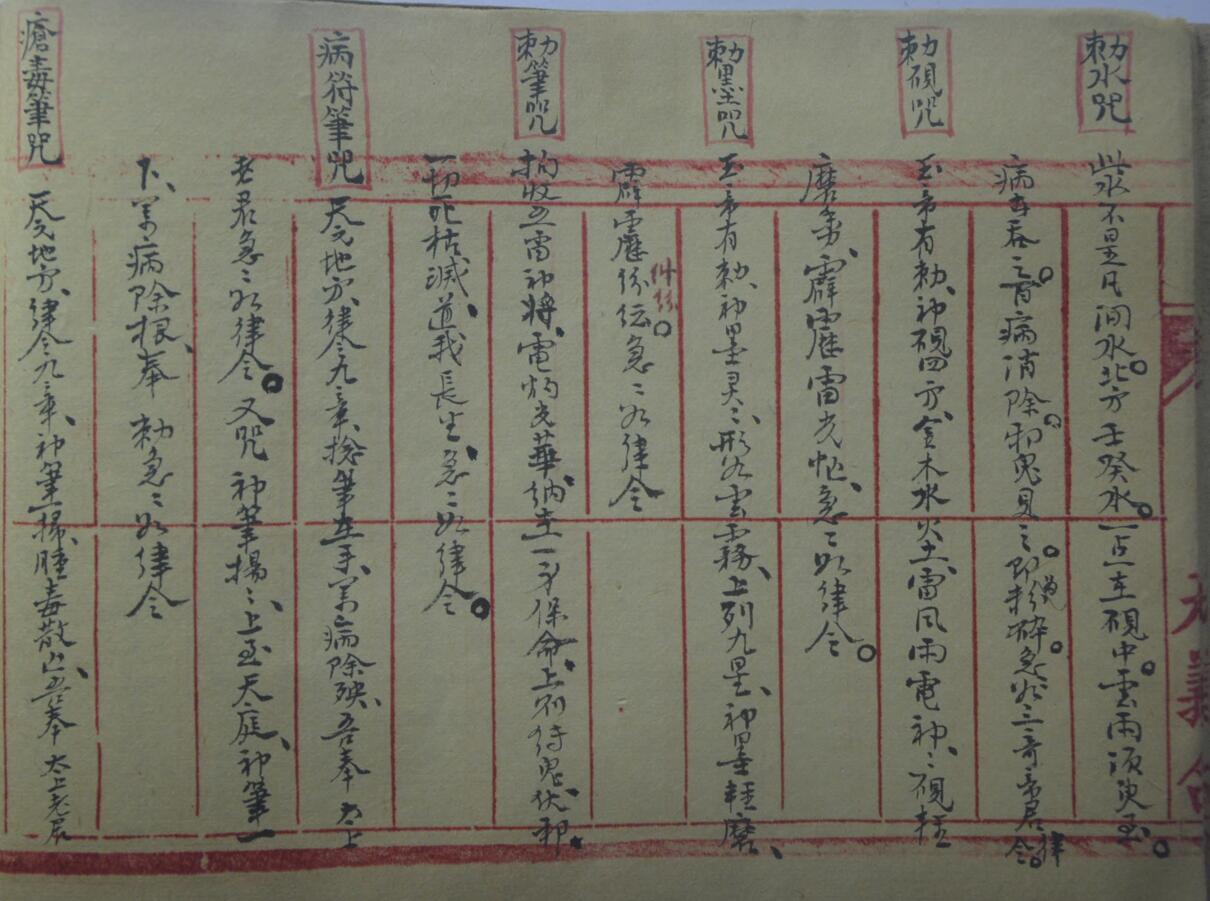 勅水咒
此水不是凡間水。北方壬癸水。一点在硯中。雲雨須臾至。
病者吞之。百病消除。邪鬼見之。即粉碎。急如三奇帝君律令。
勅硯咒
玉帝有勅、神硯四方、金木水火土、雷風雨電神、神硯輕
磨、霹靂雷光 急急如律令。
勅墨咒
玉帝有勅、神墨灵灵、形如雲霧、上列九星、神墨輕磨、
霹靂 急急如律令
勅筆咒
拘收五雷神將、電灼光華、納在一身保命、上則 鬼伏邪。
一切死 滅、道我長生、急急如律令。
病符筆咒
天元地方、律令九章、捻筆在手、萬病除殃、吾奉 太上
老君急急如律令。又咒 神筆揚揚、上至天庭、神筆一
下、萬病除根、奉 勅急急如律令
瘡毒筆咒
天元地方、律令九章、神筆一掃、腫毒散 、吾奉 太上老君